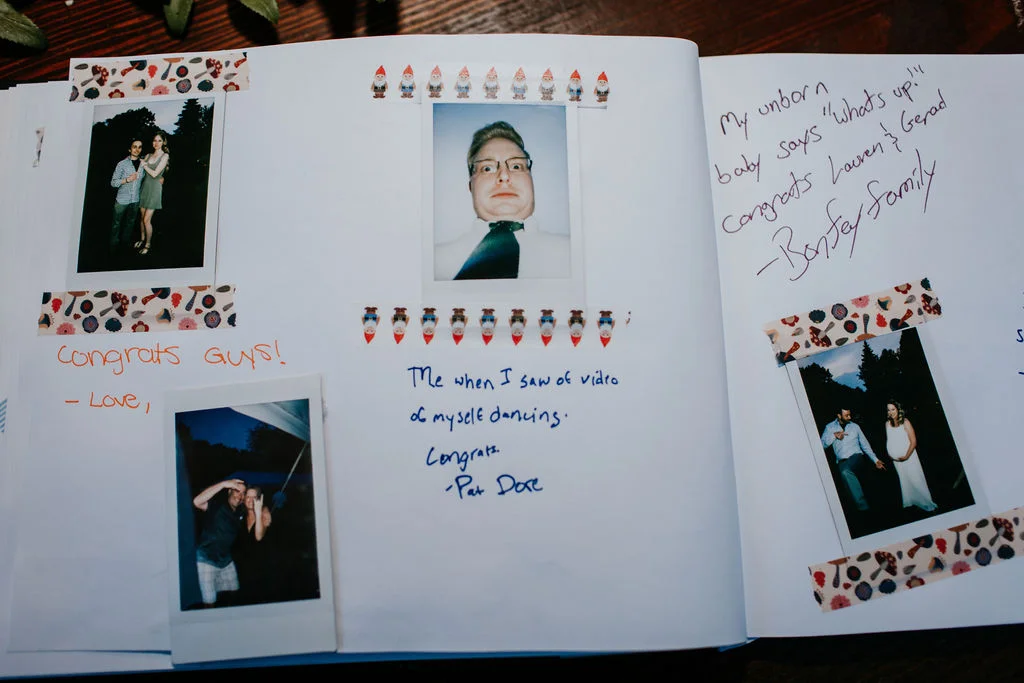 Congrats Guys!
- Love,
Me when I saw of video
of myself dancing.
Congrats.
- Pat Dore
My unborn
baby says "whats up!"
Congrats Lauren & Gerad
- Bonfey family